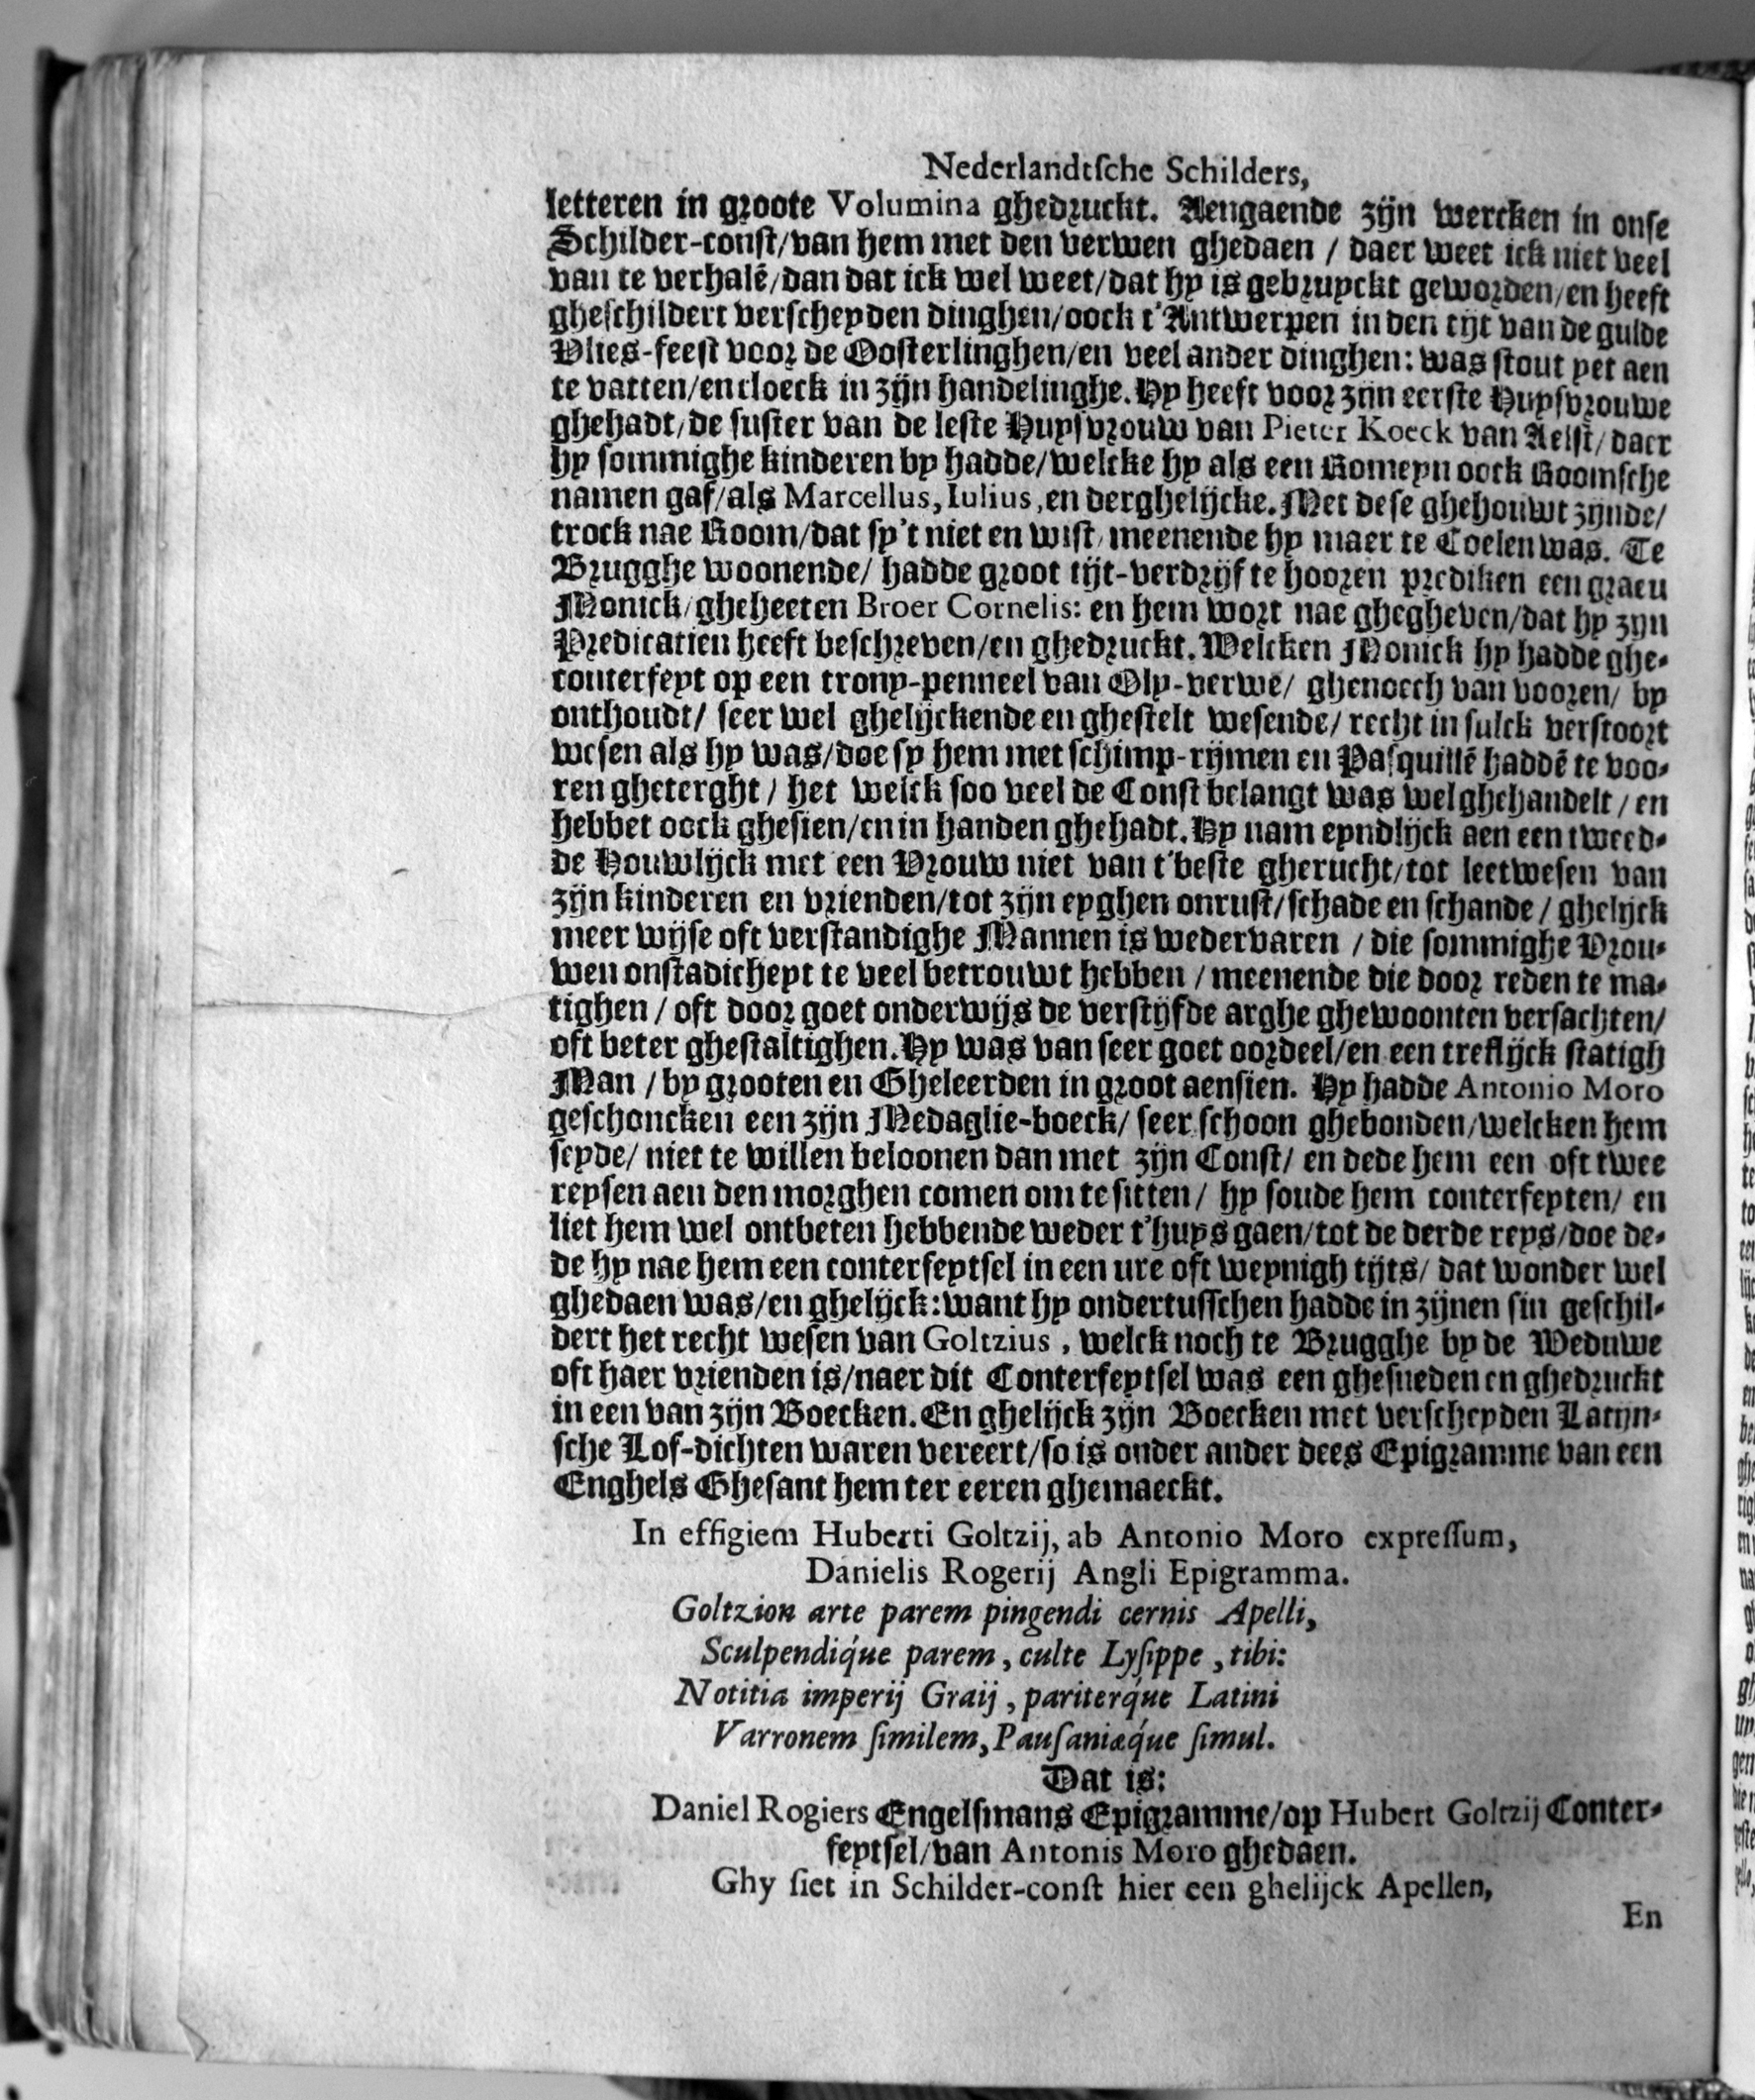 Nederlandtſche Schilders,
letteren in groote Volumina ghedruckt. Aengaende zijn wercken in onse
Schilder-conſt/van hem met den verwen ghedaen / daer weet ick niet veel
van te verhalē/dan dat ick wel weet/dat hy is gebruyckt geworden/en heeft
gheſchildert verſcheyden dinghen/oock t'Antwerpen in den tijt van de gulde
Vlies-feeſt voor de Ooſterlinghen/en veel ander dinghen: was ſtout yet aen
te vatten/en cloeck in zijn handelinghe. Hy heeft voor zijn eerſte Huyſvrouwe
ghehadt/de ſuſter van de leſte Huyſvrouw van Pieter Koeck van Aelſt/daer
hy ſommighe kinderen by hadde/welcke hy als een Romeyn oock Roomſche
namen gaf/als Marcellus, Iulius, en derghelijcke. Met deſe ghehouwt zijnde/
trock nae Room/dat ſy't niet en wiſt/meenende hy maer te Coelen was. Te
Brugghe woonende/ hadde groot tijt-verdrijf te hooren prediken een graeu
Monick/gheheeten Broer Cornelis: en hem wort nae ghegheven/dat hy zijn
Predicatien heeft beſchreven/en ghedruckt. Welcken Monick hy hadde ghe-
conterfeyt op een trony-penneel van Oly-verwe/ ghenoech van vooren/ by
onthoudt/ ſeer wel ghelijckende en gheſtelt weſende/ recht in ſulck verſtoort
weſen als hy was/doe ſy hem met ſchimp-rijmen en Paſquillē haddē te voo-
ren gheterght / het welck ſoo veel de Conſt belangt was wel ghehandelt / en
hebbet oock gheſien/en in handen ghehadt. Hy nam eyndlijck aen een tweed-
de Houwlijck met een Vrouw niet van t'beſte gherucht/tot leetweſen van
zijn kinderen en vrienden/tot zijn eyghen onruſt/ſchade en ſchande / ghelijck
meer wijſe oft verſtandighe Mannen is wedervaren / die ſommighe Vrou-
wen onſtadicheyt te veel betrouwt hebben / meenende die door reden te ma-
tighen / oft door goet onderwijs de verſtijfde arghe ghewoonten verſachten/
oft beter gheſtaltighen. Hy was van ſeer goet oordeel/en een treflijck ſtatigh
Man / by grooten en Gheleerden in groot aenſien. Hy hadde Antonio Moro
geſchoncken een zijn Medaglie-boeck/ ſeer ſchoon ghebonden/welcken hem
ſeyde/ niet te willen beloonen dan met zijn Conſt/ en dede hem een oft twee
reyſen aen den morghen comen om te ſitten / hy ſoude hem conterfeyten/ en
liet hem wel ontbeten hebbende weder t'huys gaen/tot de derde reys/doe de-
de hy nae hem een conterfeytſel in een ure oft weynigh tijts/ dat wonder wel
ghedaen was/en ghelijck: want hy ondertuſſchen hadde in zijnen ſin geſchil-
dert het recht weſen van Goltzius, welck noch te Brugghe by de Weduwe
oft haer vrienden is/naer dit Conterfeytſel was een gheſneden en ghedruckt
in een van zijn Boecken. En ghelijck zijn Boecken met verſcheyden Latijn-
ſche Lof-dichten waren vereert/ſo is onder ander dees Epigramme van een
Enghels Gheſant hem ter eeren ghemaeckt.
In effigiem Huberti Goltzij, ab Antonio Moro expreſſum,
Danielis Rogerij Angli Epigramma.
Goltzion arte parem pingendi cernis Apelli,
Sculpendiq́ue parem, culte Lyſippe, tibi:
Notitia imperij Graij, pariterq́ue Latini
Varronem ſimilem, Pauſaniæq́ue ſimul.
Dat is:
Daniel Rogiers Engelſmans Epigramme/op Hubert Goltzij Conter-
feytſel/van Antonis Moro ghedaen.
Ghy ſiet in Schilder-conſt hier een ghelijck Apellen,
En